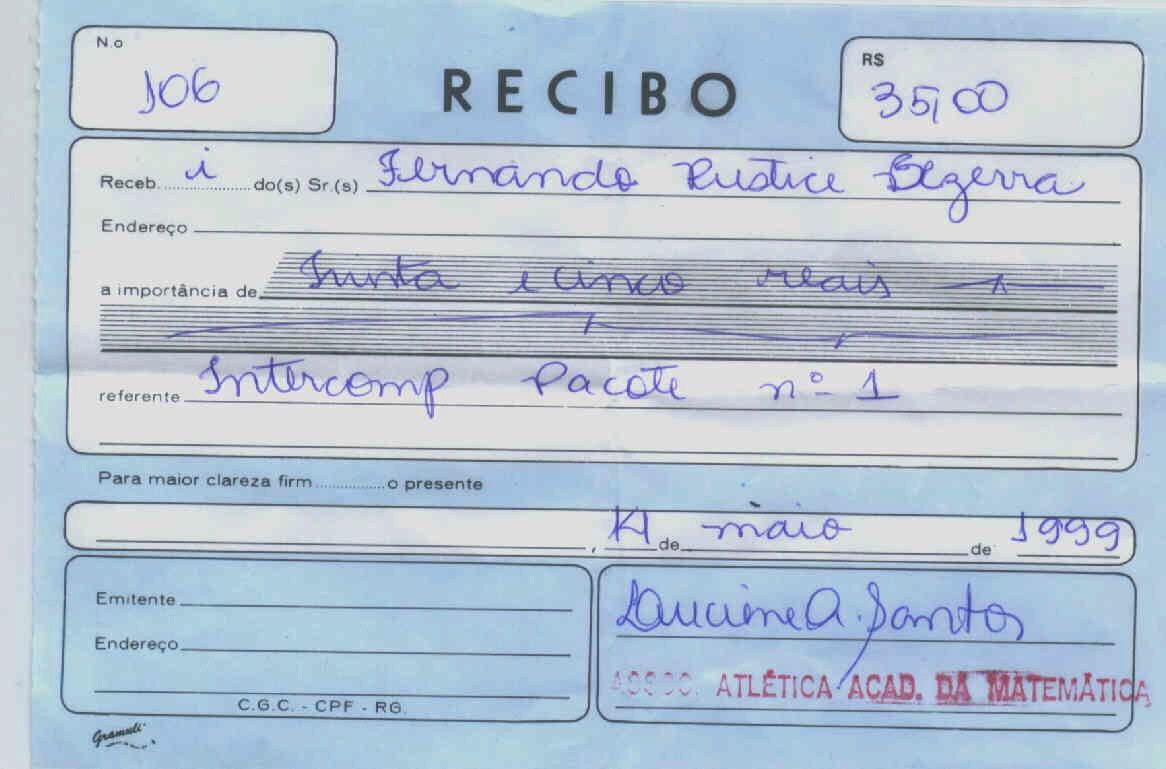 N.o
106
RECIBO
R$
35,00
Receb. i do(s) Sr.(s) Fernando Rustice Bezerra
Endereço
a importância de Trinta e cinco reais
referente Intercomp Pacote nº 1
Para maior clareza firm............... o presente
14 de maio de 1999
Emitente
Endereço
C.G.C. - CPF - RG.
Lucime A. Santos
ASSOC. ATLÉTICA ACAD. DA MATEMÁTICA
Gramuli